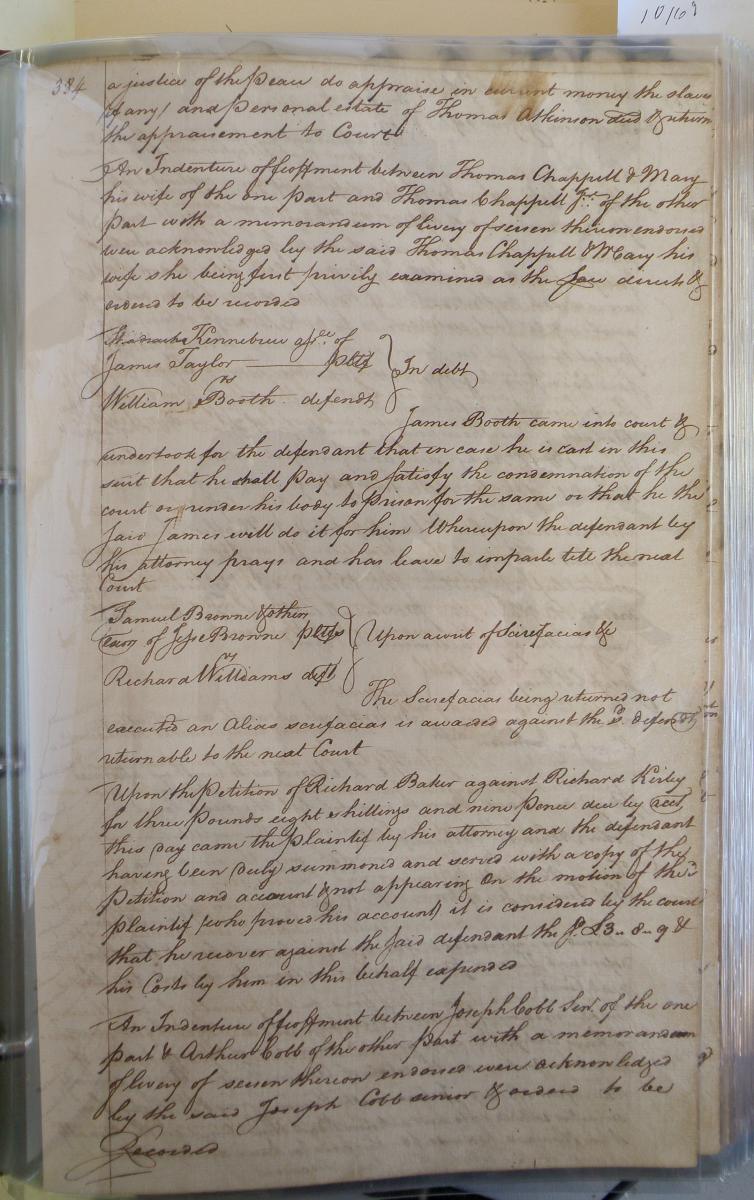 10/63
384
a justice of the Peace do appraise in current money the slaves
(if any) and personal estate of Thomas Atkinson decd & return
the appraisement to Court
An Indenture of feoffment between Thomas Chappell & Mary
his wife of the one part and Thomas Chappell Jr. of the other
part with a memorandum of livery of seisen thereon endorsed
were acknowledged by the said Thomas Chappell & Mary his
wife she being first privily examined as the Law directs &
orderd to be recorded
Shadrack Kennebrew assee. of
James Taylor pltf
In debt
vs
William Booth defendt
James Booth came into court &
undertook for the defendant that in case he is cast in this
suit that he shall pay and satisfy the condemnation of the
court or render his body to prison for the same or that he the
said James will do it for him Whereupon the defendant by
his attorney prays and has leave to imparle till the next
Court
Samuel Browne & others
Exors of Jesse Browne pltfs
Upon a writ of Scirefacias &c
vs
Richard Williams deft
The Scirefacias being returned not
executed an Alias scirefacias is awarded against the sd. defendt
returnable to the next Court
Upon the Petition of Richard Baker against Richard Kerby
for three Pounds eight shillings and nine pence due by acct
this day came the plaintif by his attorney and the defendant
having been duly summoned and served with a copy of the
Petition and account & not appearing On the motion of the
plaintif (who proved his account) it is considered by the court
that he recover against the said defendant the sd. £3.. 8.. 9 &
his Costs by him in this behalf expended
An Indenture of feoffment between Joseph Cobb Senr. of the one
part & Arthur Cobb of the other part with a memorandum
of livery of seisen thereon endorsed were acknowledged
by the said Joseph Cobb senior & orderd to be
Recorded